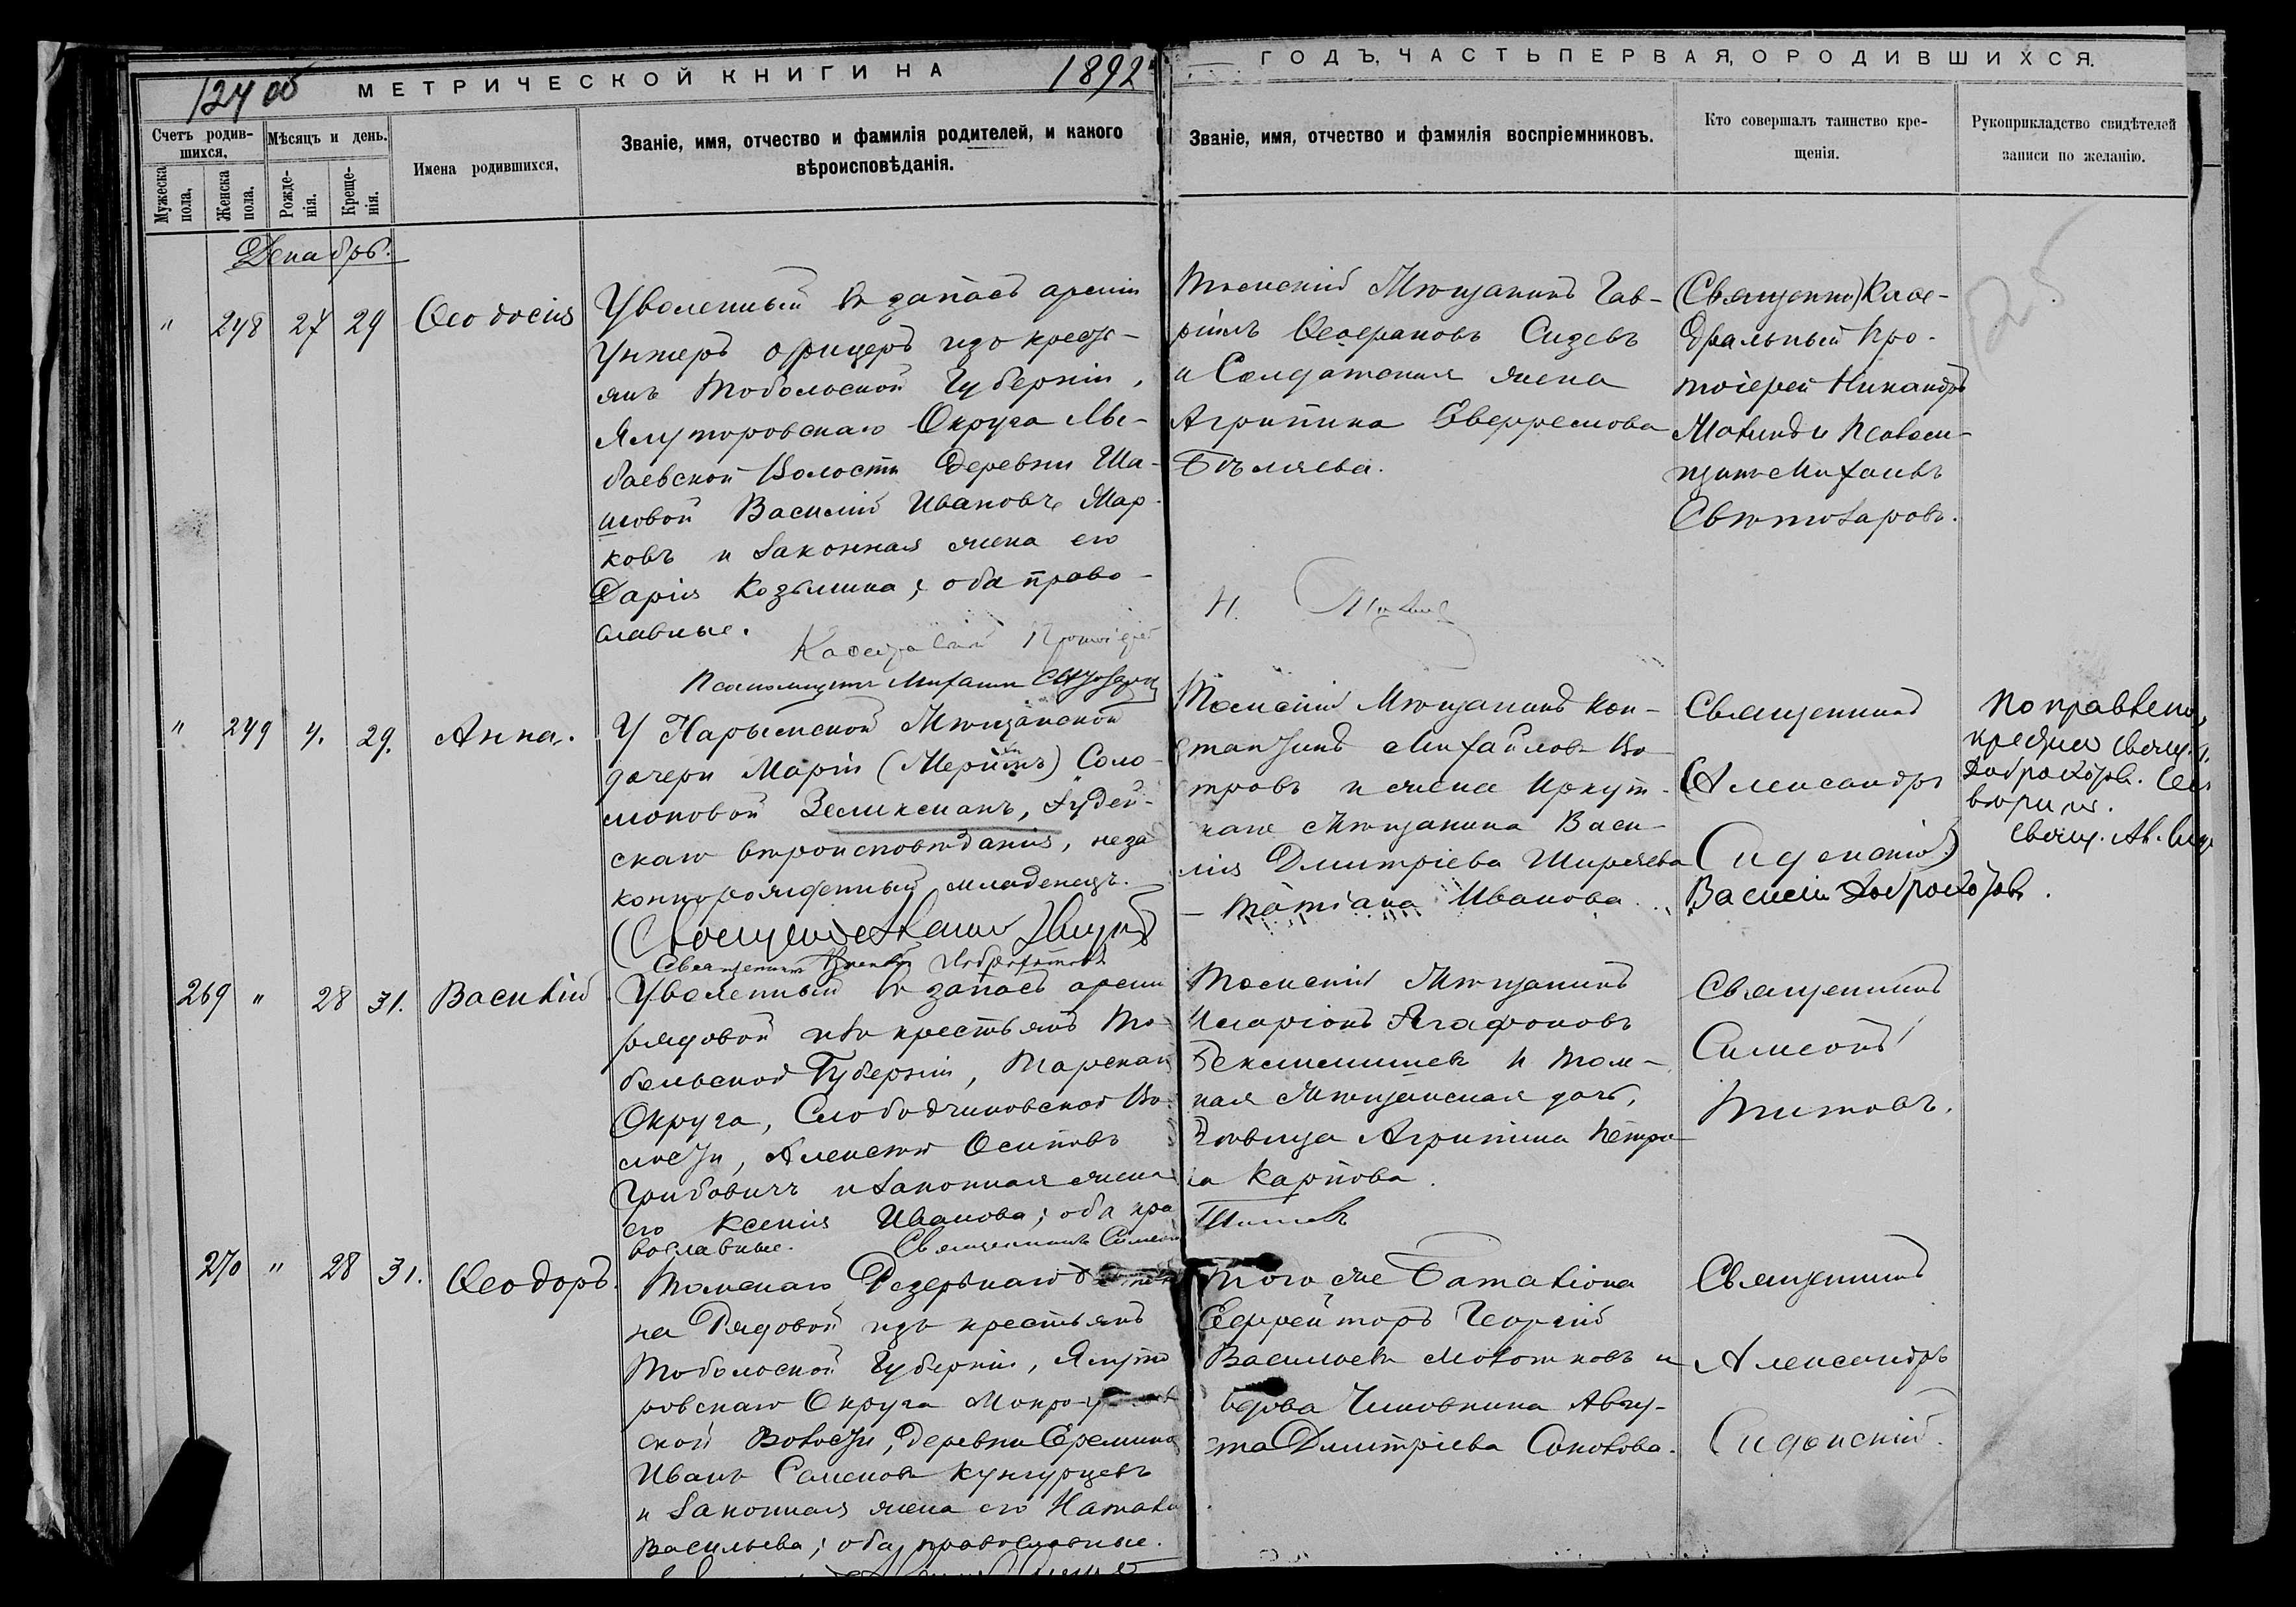 124 об
МЕТРИЧЕСКОЙ КНИГИ НА 1892
ГОДЪ, ЧАСТЬ ПЕРВАЯ, О РОДИВШИХСЯ.
Счетъ родив-
шихся,
Мужеска
пола.
Женска
пола.
Мѣсяцъ и день.
Рожде-
нія.
Креще-
нія.
Имена родившихся,
Званіе, имя, отчество и фамилія родителей, и какого
вѣроисповѣданія.
Званіе, имя, отчество и фамилія воспріемниковъ.
Кто совершалъ таинство кре-
щенія.
Рукоприкладство свидѣтелей
записи по желанію.
Декабрь.
" 248 27 29 Ѳеодосія
Уволенный въ запасъ арміи
Унтеръ офицеръ изъ крест-
янъ Тобольской Губерніи,
Ялуторовскаго Округа Лы-
баевской Волости Деревни Ша-
шовой Василій Ивановъ Мар-
ковъ и законная жена его
Дарія Козьмина; оба право-
славные.
Каѳедральный Протоіерей
Псаломщикъ Михаилъ
Томскій Мѣщанинъ Гав-
ріилъ Ѳеофановъ Сизевъ
и Солдатская жена
Агрипина Евфремова
Бѣляева.
Н.
Священно) Каѳе-
дральный Про-
тоіерей Никандръ
Малинъ и Псалом-
щикъ Михаилъ
Свѣтозаровъ.
" 249 4. 29. Анна.
У Нарымской Мѣщанской
дочери Маріи (Меріимъ) Соло-
моновой Зеликсманъ, Іудей-
скаго вѣроисповѣданія, неза-
коннорожденный младенецъ.
Священникъ
Томскій Мѣщанинъ Кон-
стантинъ Михайловъ Во-
тровъ и жена Иркут-
скаго Мѣщанина Васи-
лія Дмитріева Ширяева
– Татіана Иванова.
Священникъ
Александръ
Сиденскій
Василій Доброхотовъ.
Поправлено,
крестилъ Свящ.
Доброхотовъ.
вѣрно.
Свящ. Ал.
269 " 28 31. Василій
Уволенный въ запасъ арміи
рядовой изъ крестьянъ То-
больской Губерніи, Тарскаго
Округа, Слободчиковской Во-
лости, Алексѣй Осиповъ
Грибовичъ и законная жена
его Ксенія Иванова; оба пра-
вославные. Священникъ Симеонъ
Титовъ
Томскій Мѣщанинъ
Иларіонъ Агафоновъ
Бекмишевъ и Том-
ская Мѣщанская дочь,
Дѣвица Агрипина Петро-
ва Карпова.
Священникъ
Симеонъ
Титовъ.
270 " 28 31. Ѳеодоръ.
Томскаго Резервнаго
на Рядовой изъ крестьянъ
Тобольской Губерніи, Ялуто
ровскаго Округа
ской Волости, деревни Еремино
Иванъ Семеновъ Кунгурцевъ
и законная жена его Наталія
Васильева; оба православные.
Того же Баталіона
Ефрейторъ Георгій
Васильевъ Молотковъ и
вдова Чиновника Авгу-
ста Дмитріева Соколова.
Священникъ
Александръ
Сиденскій.